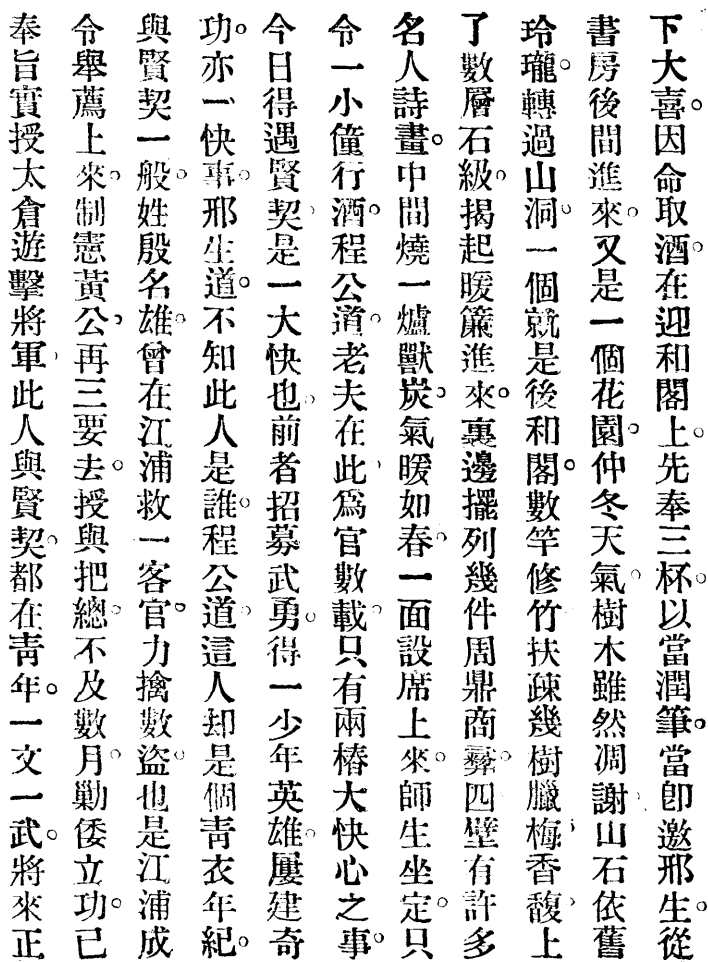 下大喜。因命取酒。在迎和閣上。先奉三杯。以當潤筆。當卽邀邢生。從
書房後間進來。又是一個花園。仲冬天氣。樹木雖然凋謝。山石依舊
玲瓏。轉過山洞。一個就是後和閣。數竿修竹扶疎。幾樹臘梅。香馥。上
了數層石級。揭起暖簾進來。裏邊擺列幾件周鼎商彝。四壁有許多
名人詩畫。中間燒一爐獸炭。氣暖如春。一面設席上來。師生坐定。只
令一小僮行酒。程公道。老夫在此。爲官數載。只有兩樁大快心之事。
今日得遇賢契。是一大快也。前者招募武勇。得一少年英雄。屢建奇
功。亦一快事。邢生道。不知此人是誰。程公道。這人却是個靑衣年紀。
與賢契一般。姓殷名雄。曾在江浦救一客官。力擒數盜。也是江浦成
令舉薦上來。制憲黃公。再三要去。授與把總。不及數月。勦倭立功。已
奉旨實授太倉遊擊將軍。此人與賢契。都在靑年。一文一武。將來正